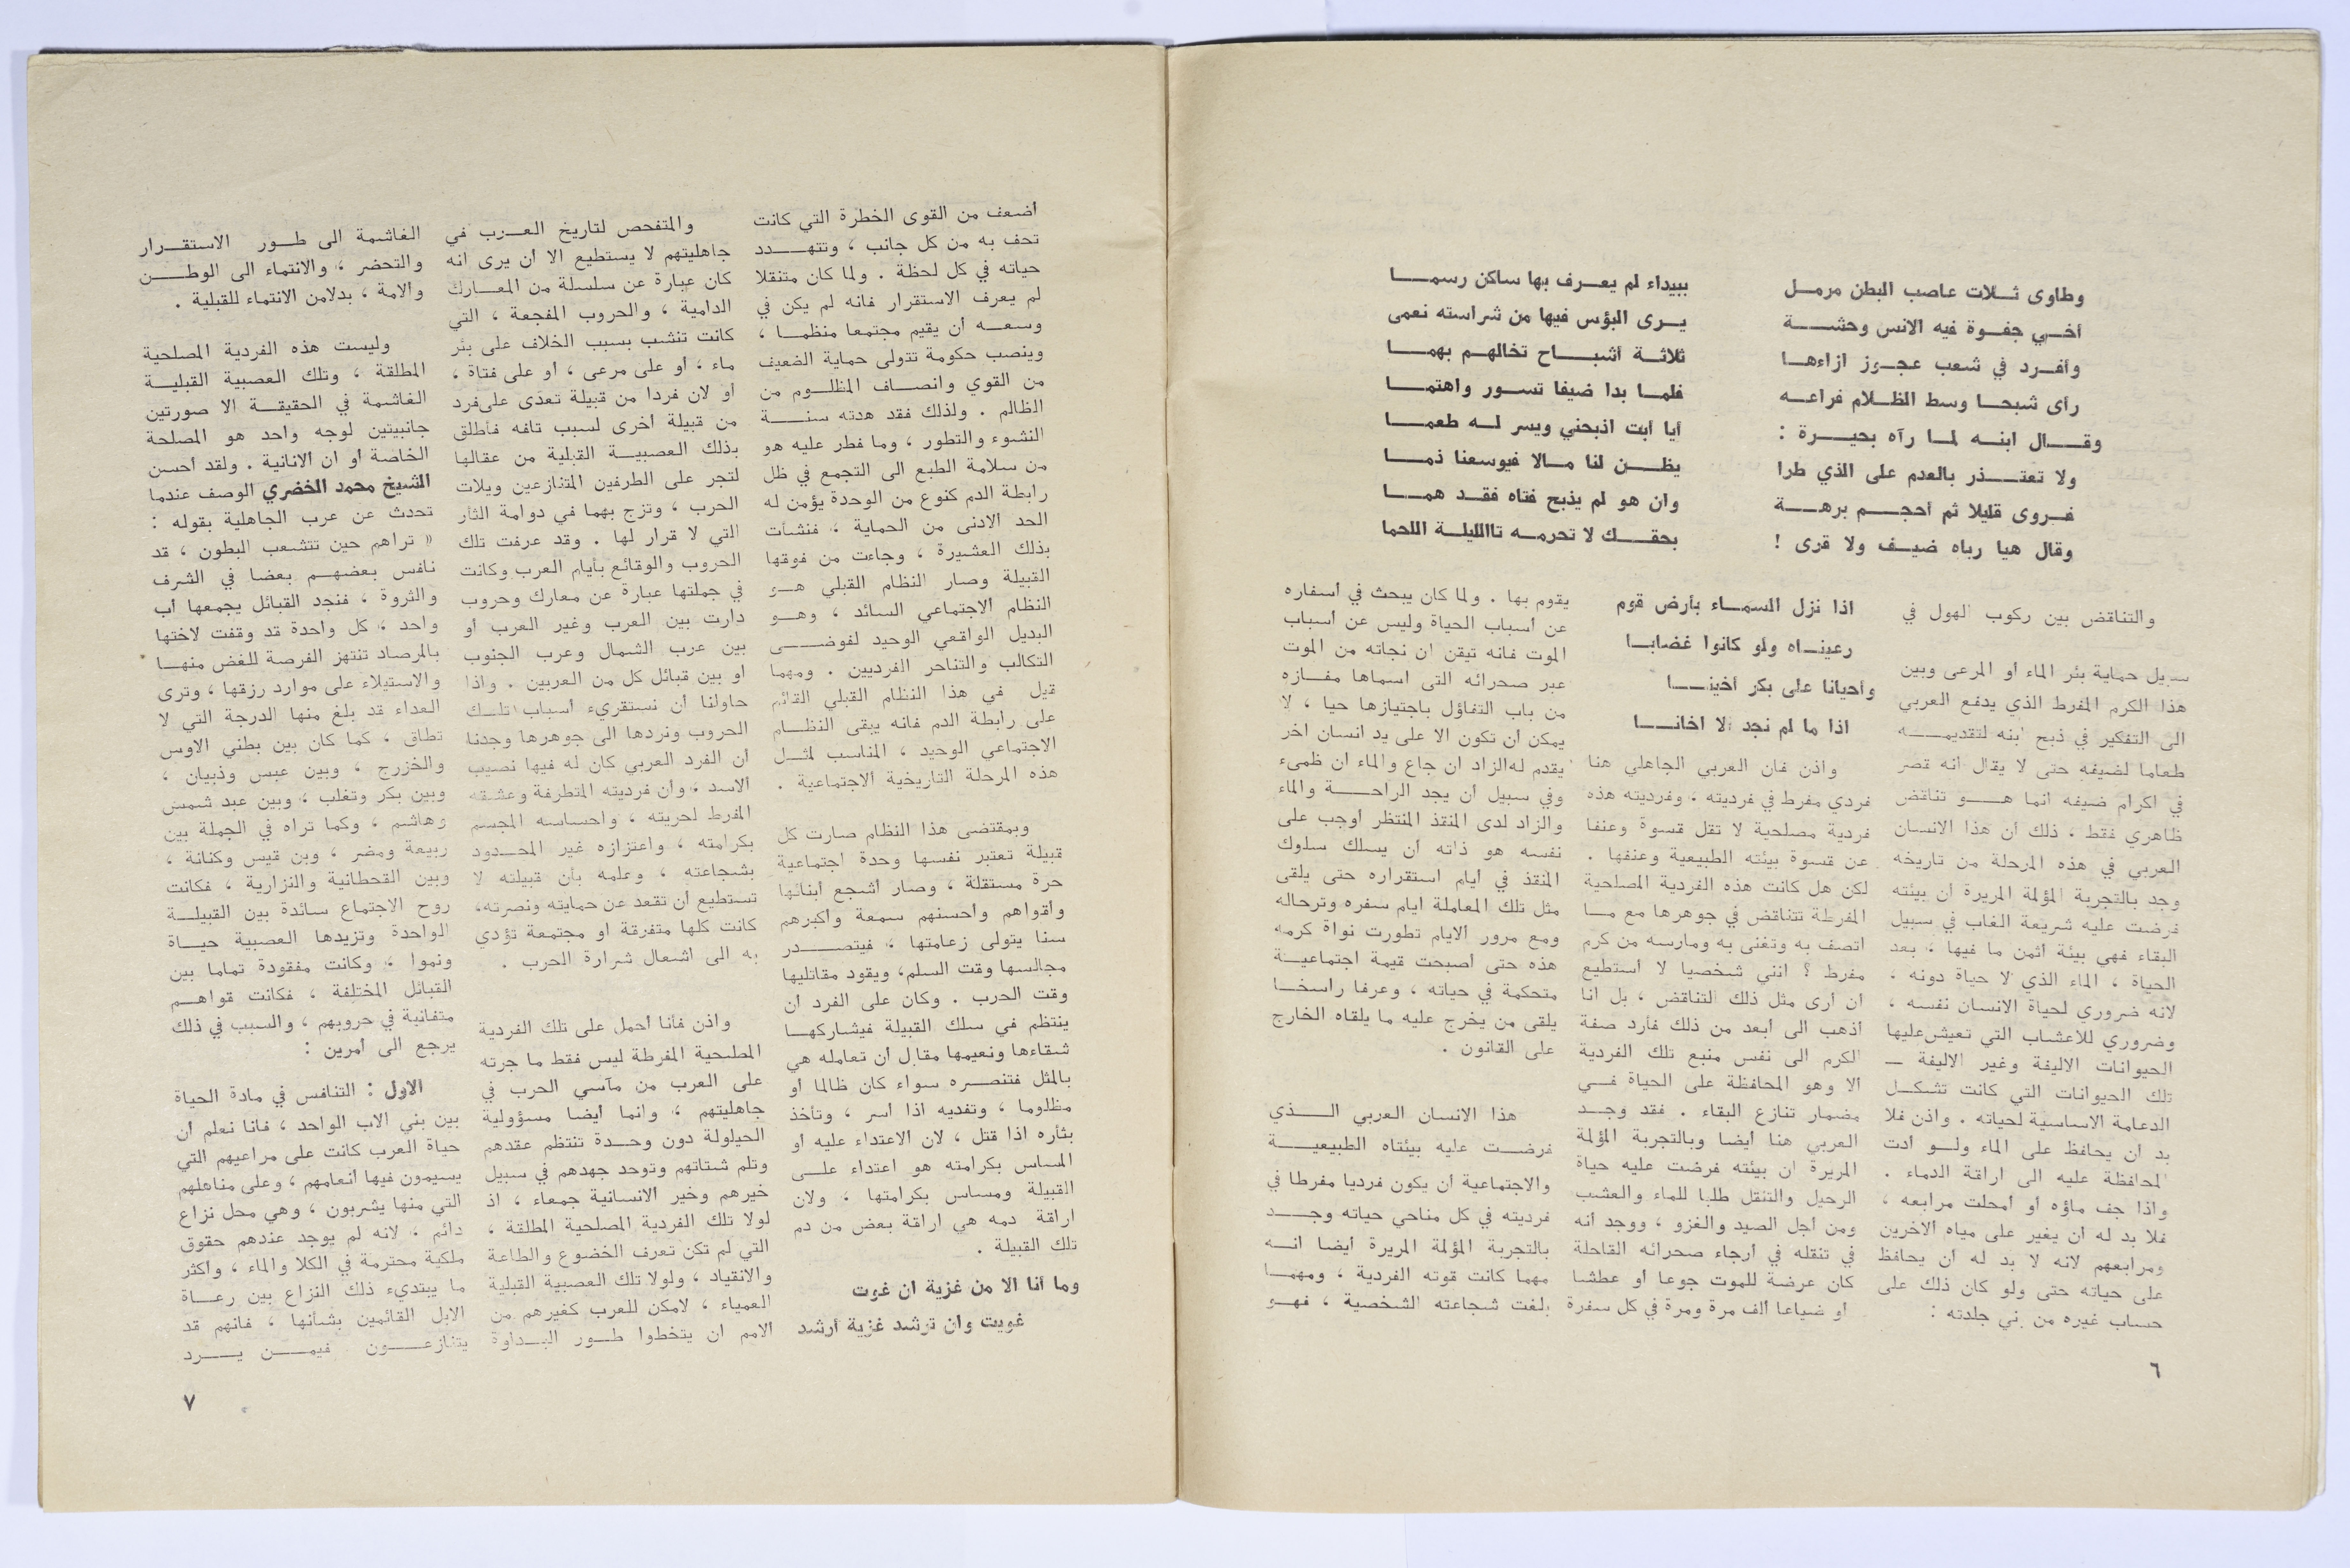 وطاوى ثـلاث عاصب البطن مرمـل
ببيداء لم يعـرف بها ساكن رسمـا
أخـي جفـوة فيه الانس وحشـة
يـرى البؤس فيها من شراسته نعمى
وأفـرد في شعب عجـوز ازاءهـا
ثلاثـة أشبـاح تخالهـم بهمـا
رأى شبحـا وسط الظـلام فراعـه
فلمـا بدا ضيفا تسـور واهتمـا
وقـال ابنـه لمـا رآه بحيـرة :
أيا أبت اذبحني ويسر لـه طعمـا
ولا تعتـذر بالعدم على الذي طرا
يظـن لنا مـالا فيوسعنا ذمـا
فـروى قليلا ثم أحجـم برهـة
وان هو لم يذبح فتاه فقـد همـا
وقال هيا رباه ضيـف ولا قرى !
بحقـك لا تحرمـه تاالليلـة اللحما
والتناقض بين ركوب الهول في
سبيل حماية بئر الماء أو المرعى وبين
هذا الكرم المفرط الذي يدفع العربي
الى التفكير في ذبح ابنه لتقديمـه
طعاما لضيفه حتى لا يقال انه قصر
في اكرام ضيفه انما هـو تناقض
ظاهري فقط ، ذلك ان هذا الانسان
العربي في هذه المرحلة من تاريخه
وجد بالتجربة المؤلمة المريرة ان بيئته
فرضت عليه شريعة الغاب في سبيل
البقاء فهي بيئة أثمن ما فيها ، بعد
الحياة ، الماء الذي لا حياة دونه ،
لانه ضروري لحياة الانسان نفسه ،
وضروري للاعشاب التي تعيش عليها
الحيوانات الاليفة وغير الاليفة ـ
تلك الحيوانات التي كانت تشكـل
الدعامة الاساسية لحياته . واذن فلا
بد ان يحافظ على الماء ولـو ادت
المحافظة عليه الى اراقة الدماء .
واذا جف ماؤه أو أمحلت مرابعه ،
فلا بد له أن يغير على مياه الآخرين
ومرابعهم لانه لا بد له أن يحافظ
على حياته حتى ولو كان ذلك على
حساب غيره من بني جلدته :
اذا نزل السمـاء بأرض قوم
رعينـاه ولو كانوا غضابـا
وأحيانا على بكر أخينـا
اذا ما لم نجد الا اخانـا
واذن فان العربي الجاهلي هنا
فردي مفرط في فرديته . وفرديته هذه
فردية مصلحية لا تقل قسوة وعنفا
عن قسوة بيئته الطبيعية وعنفها .
لكن هل كانت هذه الفردية المصلحية
المفرطة تتناقض في جوهرها مع مـا
اتصف به وتغنى به ومارسه من كرم
مفرط ؟ انني شخصيا لا أستطيع
ان ارى مثل ذلك التناقض ، بل انا
أذهب الى أبعد من ذلك فأرد صفة
الكرم الى نفس منبع تلك الفردية
الا وهو المحافظة على الحياة فـي
مضمار تنازع البقاء . فقد وجـد
العربي هنا أيضا وبالتجربة المؤلمة
المريرة ان بيئته فرضت عليه حياة
الرحيل والتنقل طلبا للماء والعشب
ومن أجل الصيد والغزو ، ووجد أنه
في تنقله في أرجاء صحرائه القاحلة
كان عرضة للموت جوعا او عطشا
او ضياعا الف مرة ومرة في كل سفرة
يقوم بها . ولما كان يبحث في أسفاره
عن أسباب الحياة وليس عن أسباب
الموت فانه تيقن ان نجاته من الموت
عبر صحرائه التي اسماها مفـازه
من باب التفاؤل باجتيازها حيا ، لا
يمكن ان تكون الا على يد انسان آخر
يقدم له الزاد ان جاع والماء ان ظمىء
وفي سبيل أن يجد الراحـة والماء
والزاد لدى المنقذ المنتظر أوجب على
نفسه هو ذاته ان يسلك سلوك
المنقذ في أيام استقراره حتى يلقى
مثل تلك المعاملة أيام سفره وترحاله
ومع مرور الايام تطورت نواة كرمه
هذه حتى أصبحت قيمة اجتماعيـة
متحكمة في حياته ، وعرفا راسخـا
يلقى من يخرج عليه ما يلقاه الخارج
على القانون .
هذا الانسان العربي الـذي
فرضـت عليه بيئتاه الطبيعيـة
والاجتماعية أن يكون فرديا مفرطا في
فرديته في كل مناحي حياته وجـد
بالتجربة المؤلمة المريرة أيضا انـه
مهما كانت قوته الفردية ، ومهمـا
بلغت شجاعته الشخصية ، فهـو
٦
أضعف من القوى الخطرة التي كانت
تحف به من كل جانب ، وتتهـدد
حياته في كل لحظة . ولما كان متنقلا
لم يعرف الاستقرار فانه لم يكن في
وسعـه أن يقيم مجتمعا منظمـا ،
وينصب حكومة تتولى حماية الضعيف
من القوي وانصـاف المظلـوم من
الظالم . ولذلك فقد هدته سنـة
النشوء والتطور ، وما فطر عليه هو
من سلامة الطبع الى التجمع في ظل
رابطة الدم كنوع من الوحدة يؤمن له
الحد الادنى من الحماية ، فنشأت
بذلك العشيرة ، وجاءت من فوقها
القبيلة وصار النظام القبلي هـو
النظام الاجتماعي السائد ، وهـو
البديل الواقعي الوحيد لفوضـى
التكالب والتناحر الفرديين . ومهما
قيل في هذا النظام القبلي القائم
على رابطة الدم فانه يبقى النظـام
الاجتماعي الوحيد ، المناسب لمثـل
هذه المرحلة التاريخية الاجتماعية .
وبمقتضى هذا النظام صارت كل
قبيلة تعتبر نفسها وحدة اجتماعية
حرة مستقلة ، وصار أشجع أبنائها
وأقواهم وأحسنهم سمعة وأكبرهم
سنا يتولى زعامتها ، فيتصـدر
مجالسها وقت السلم، ويقود مقاتليها
وقت الحرب . وكان على الفرد ان
ينتظم في سلك القبيلة فيشاركهـا
شقاءها ونعيمها مقابل أن تعامله هي
بالمثل فتنصـره سواء كان ظالما أو
مظلوما ، وتفديه اذا أسر ، وتأخذ
بثأره اذا قتل ، لان الاعتداء عليه او
المساس بكرامته هو اعتداء علـى
القبيلة ومساس بكرامتها ، ولان
اراقة دمه هي اراقة بعض من دم
تلك القبيلة .
وما أنا الا من غزية ان غوت
غويت وان ترشد غزية أرشد
والمتفحص لتاريخ العـرب في
جاهليتهم لا يستطيع الا أن يرى أنه
كان عبارة عن سلسلة من المعـارك
الدامية ، والحروب المفجعة ، التي
كانت تنشب بسبب الخلاف على بئر
ماء ، أو على مرعى ، أو على فتاة ،
أو لان فردا من قبيلة تعدى على فرد
من قبيلة أخرى لسبب تافه فأطلق
بذلك العصبيـة القبلية من عقالها
لتجر على الطرفين المتنازعين ويلات
الحرب ، وتزج بهما في دوامة الثأر
التي لا قرار لها . وقد عرفت تلك
الحروب والوقائع بأيام العرب وكانت
في جملتها عبارة عن معارك وحروب
دارت بين العرب وغير العرب أو
بين عرب الشمال وعرب الجنوب
او بين قبائل كل من العربين . واذا
حاولنا أن نستقريء أسباب تلـك
الحروب ونردها الى جوهرها وجدنا
أن الفرد العربي كان له فيها نصيب
الاسد ، وأن فرديته المتطرفة وعشقه
المفرط لحريته ، واحساسه المجسم
بكرامته ، واعتزازه غير المحـدود
بشجاعته ، وعلمه بأن قبيلته لا
تستطيع أن تقعد عن حمايته ونصرته،
كانت كلها متفرقة او مجتمعة تؤدي
به الى اشعال شرارة الحرب .
واذن فأنا أحمل على تلك الفردية
المطحية المفرطة ليس فقط ما جرته
على العرب من مآسي الحرب في
جاهليتهم ، وانما أيضا مسؤولية
الحيلولة دون وحـدة تنتظم عقدهم
وتلم شتاتهم وتوحد جهدهم في سبيل
خيرهم وخير الانسانية جمعاء ، اذ
لولا تلك الفردية المصلحية المطلقة ،
التي لم تكن تعرف الخضوع والطاعة
والانقياد ، ولولا تلك العصبية القبلية
العمياء ، لامكن للعرب كغيرهم من
الامم ان يتخطوا طـور البـداوة
الغاشمة الى طـور الاستقـرار
والتحضر ، والانتماء الى الوطـن
والامة ، بدلا من الانتماء للقبلية .
وليست هذه الفردية المصلحية
المطلقة ، وتلك العصبية القبليـة
الغاشمة في الحقيقـة الا صورتين
جانبيتين لوجه واحد هو المصلحة
الخاصة أو ان الانانية . ولقد أحسن
الشيخ محمد الخضري الوصف عندما
تحدث عن عرب الجاهلية بقوله :
« تراهم حين تتشعب البطون ، قد
نافس بعضهـم بعضا في الشرف
والثروة ، فنجد القبائل يجمعها أب
واحد ، كل واحدة قد وقفت لاختها
بالمرصاد تنتهز الفرصة للغض منهـا
والاستيلاء على موارد رزقها ، وترى
العداء قد بلغ منها الدرجة التي لا
تطاق ، كما كان بين بطني الاوس
والخزرج ، وبين عبس وذبيان ،
وبين بكر وتغلب ، وبين عبد شمس
وهاشم ، وكما تراه في الجملة بين
ربيعة ومضر ، وبن قيس وكنانة ،
وبين القحطانية والنزارية ، فكانت
روح الاجتماع سائدة بين القبيلـة
الواحدة وتزيدها العصبية حيـاة
ونموا ، وكانت مفقودة تماما بين
القبائل المختلفة ، فكانت قواهـم
متفانية في حروبهم ، والسبب في ذلك
يرجع الى أمرين :
الاول : التنافس في مادة الحياة
بين بني الاب الواحد ، فانا نعلم أن
حياة العرب كانت على مراعيهم التي
يسيمون فيها أنعامهم ، وعلى مناهلهم
التي منها يشربون ، وهي محل نزاع
دائم ، لانه لم يوجد عندهم حقوق
ملكية محترمة في الكلا والماء ، وأكثر
ما يبتديء ذلك النزاع بين رعـاة
الابل القائمين بشأنها ، فانهم قد
يتنازعـون فيمـن يـرد
٧